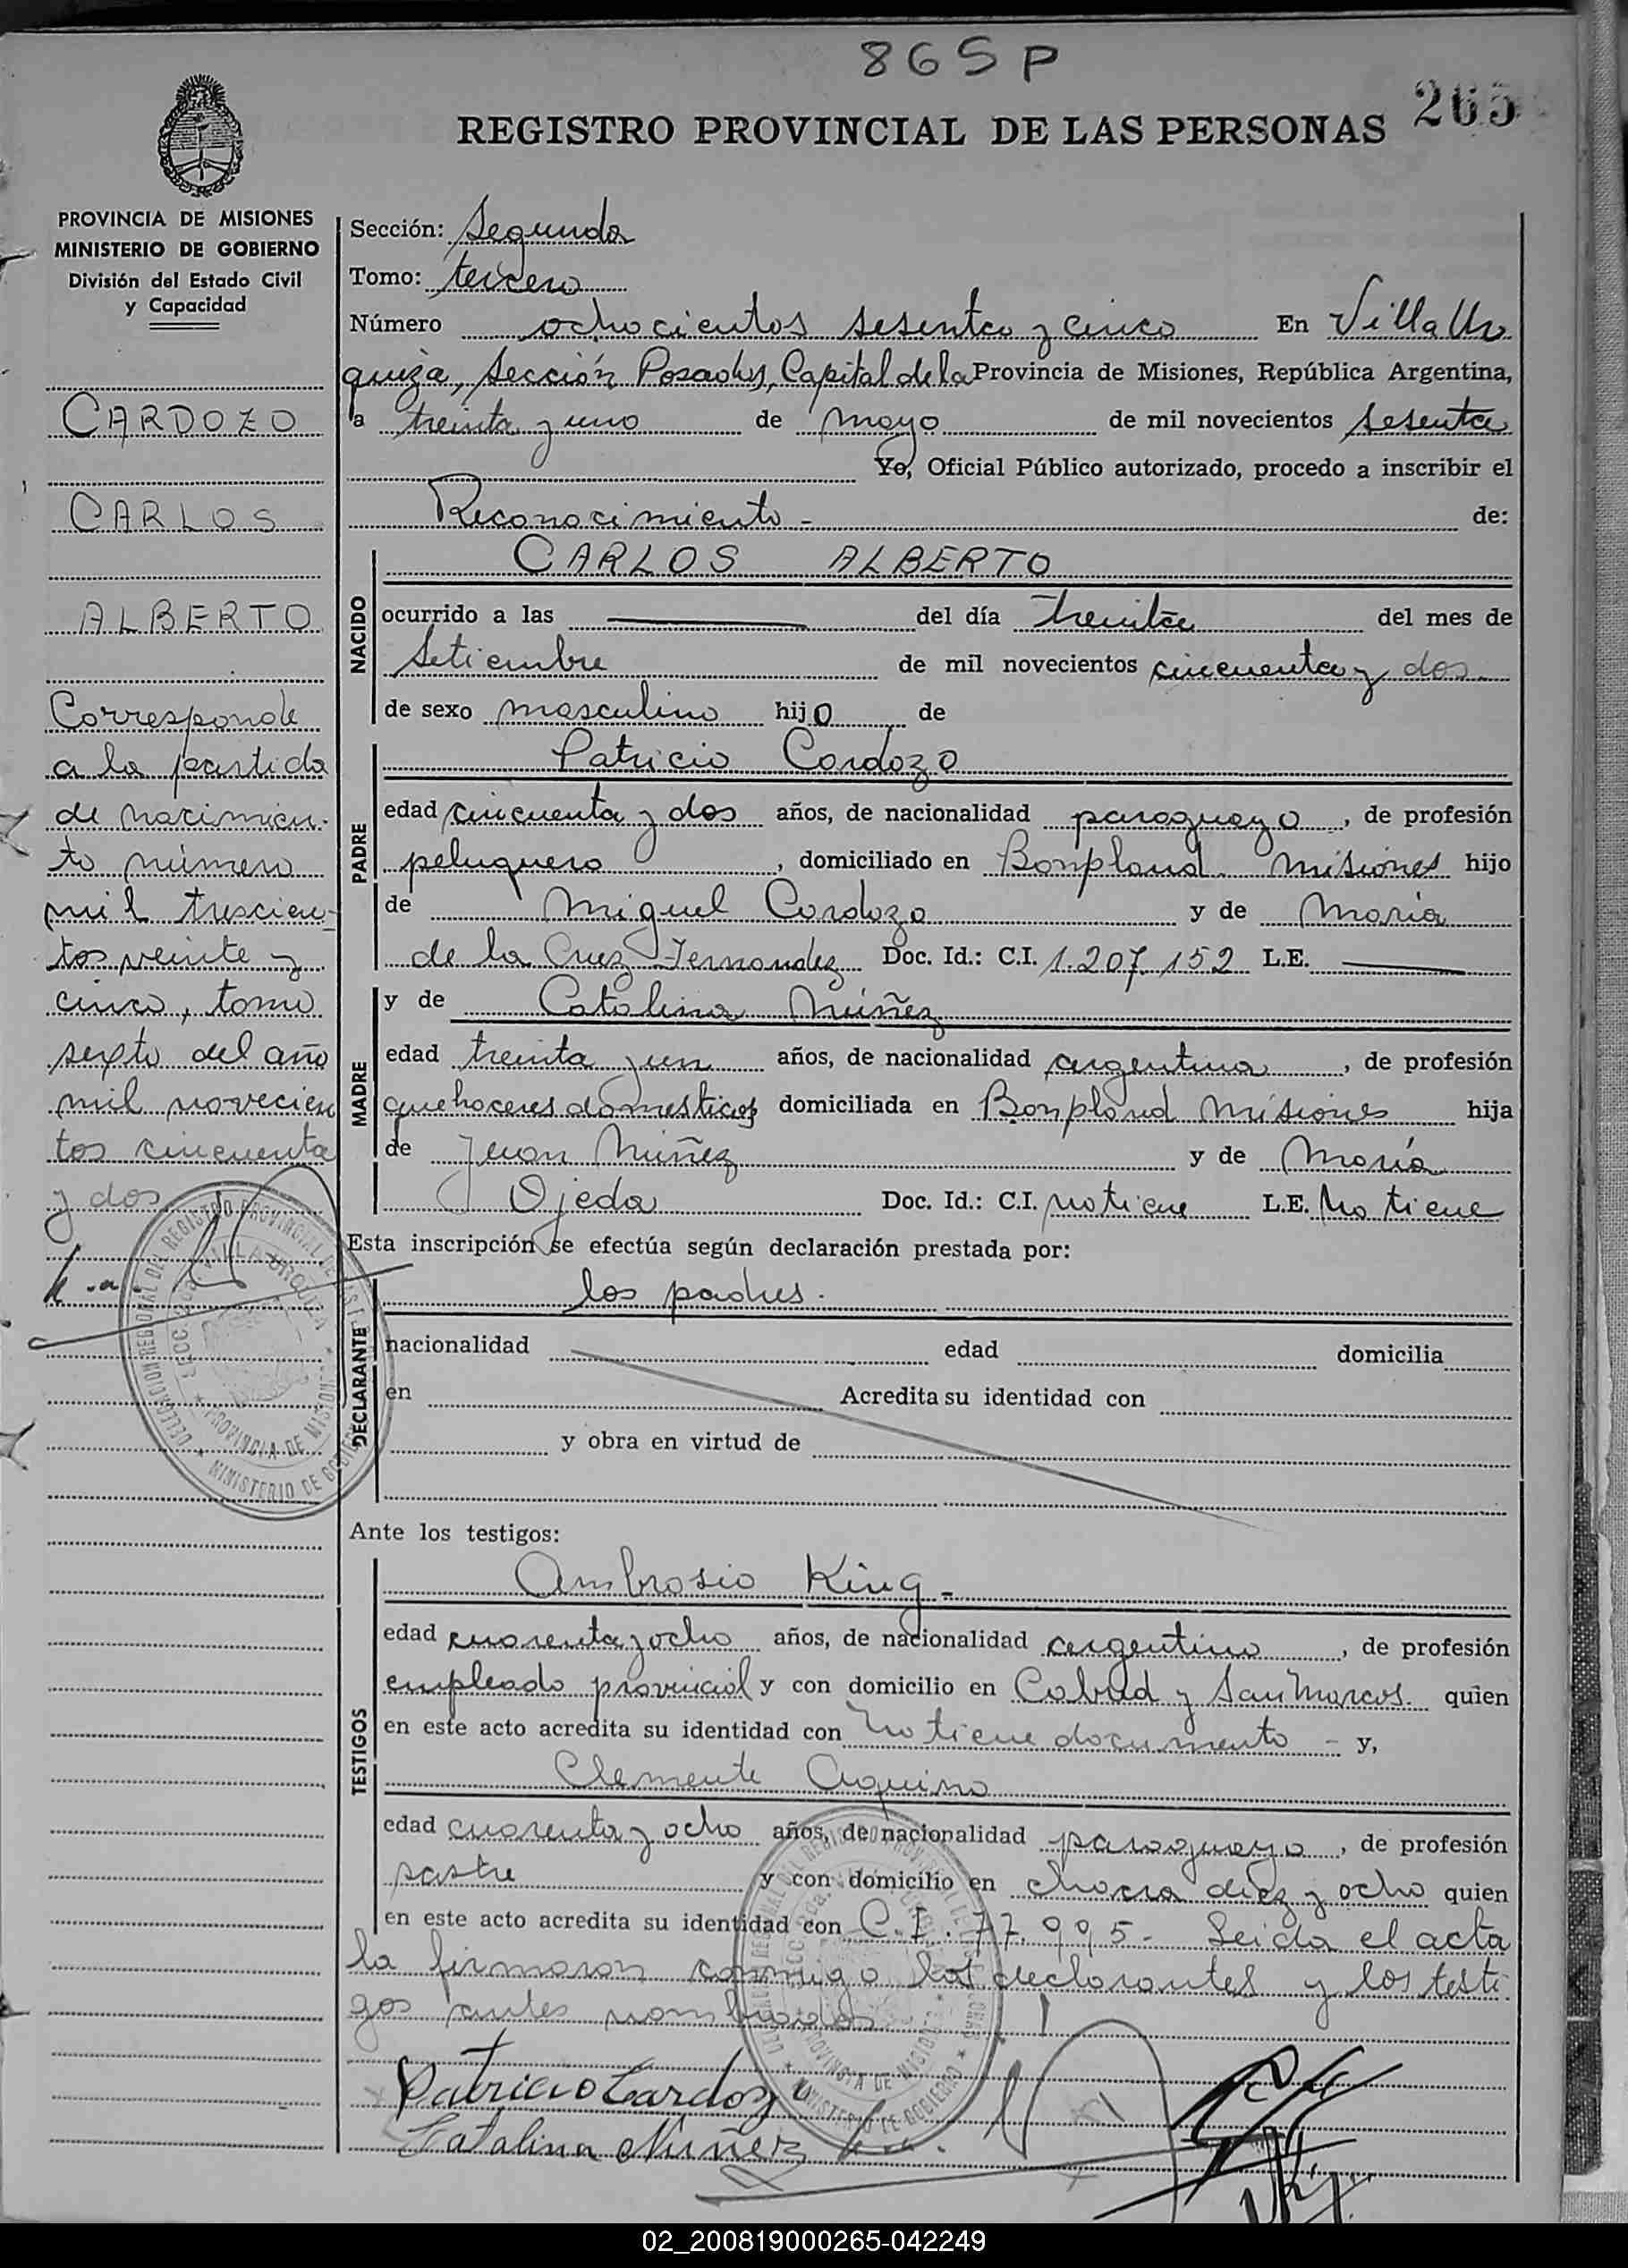 865 P
265
REGISTRO PROVINCIAL DE LAS PERSONAS
PROVINCIA DE MISIONES
MINISTERIO DE GOBIERNO
División del Estado Civil
y Capacidad
CARDOZO
CARLOS
ALBERTO
Corresponde
a la partida
de nacimien-
to número
mil trescien-
tos veinte y
cinco, tomo
sexto del año
mil novecien
tos cincuenta
y dos
Sección: Segunda
Tomo: tercero
Número ochocientos sesenta y cinco En Villa Ur
quiza, Sección Posadas, Capital de la Provincia de Misiones, República Argentina,
a treinta y uno de mayo de mil novecientos sesenta
Yo, Oficial Público autorizado, procedo a inscribir el
Reconocimiento - de:
NACIDO
CARLOS ALBERTO
ocurrido a las del día treinta del mes de
Setiembre de mil novecientos cincuenta y dos
de sexo masculino hijo de
PADRE
Patricio Cardozo
edad cincuenta y dos años, de nacionalidad paraguayo, de profesión
peluquero, domiciliado en Bonpland Misiones hijo
de Miguel Cardozo y de María
de la Cruz Fernandez Doc. Id.: C.I. 1.207.152 L.E.
MADRE
y de Catalina Núñez
edad treinta y un años, de nacionalidad argentina, de profesión
quehaceres domesticos domiciliada en Bonpland Misiones hija
de Juan Núñez y de María
Ojeda Doc. Id.: C.I. no tiene L.E. No tiene
Esta inscripción se efectúa según declaración prestada por:
DECLARANTE
los padres.
nacionalidad edad domicilia
en Acredita su identidad con
y obra en virtud de
Ante los testigos:
TESTIGOS
Ambrosio King -
edad cuarenta y ocho años, de nacionalidad argentino, de profesión
empleado provincial y con domicilio en Cabred y San Marcos. quien
en este acto acredita su identidad con No tiene documento - y,
Clemente Aquino
edad cuarenta y ocho años, de nacionalidad paraguayo, de profesión
sastre y con domicilio en chacra diez y ocho quien
en este acto acredita su identidad con C.I. 77.995 - Leida el acta
la firmaron conmigo los declarantes y los testi-
gos antes nombrados
Patricio Cardozo
Catalina Nuñez
DELEGACION REGIONAL DEL REGISTRO PROVINCIAL DE LAS PERSONAS
VILLA URQUIZA
PROVINCIA DE MISIONES
MINISTERIO DE GOBIERNO
02_200819000265-042249